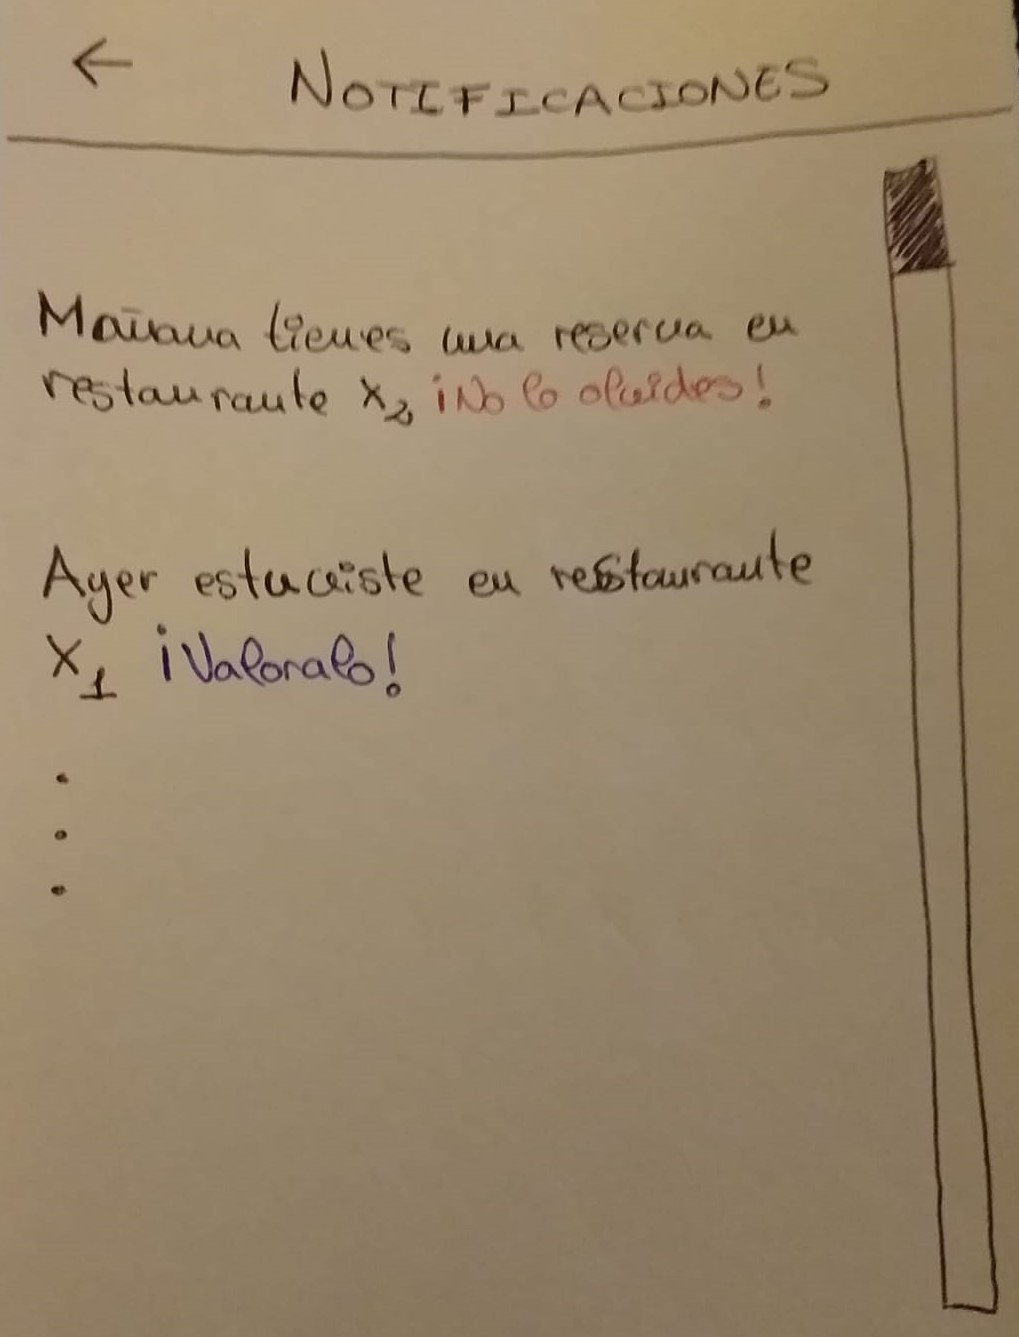 ← NOTIFICACIONES
Mañana tienes una reserva en
restaurante X₂ ¡No lo olvides!
Ayer estuviste en restaurante
X₁ ¡Valoralo!